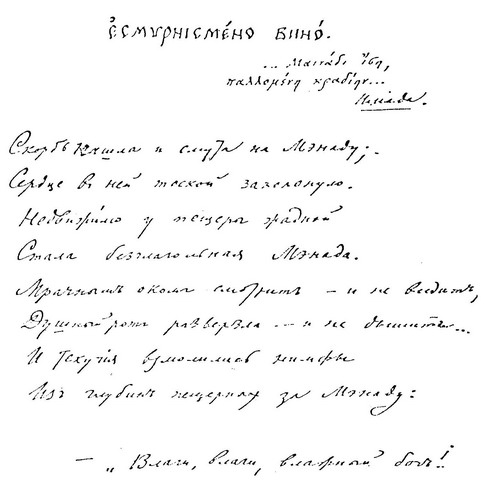 ЕСМУРНІСМЕ́НО ВИНО́.
... Μαινάδι ἴση,
παλλομένη κραδίην...
Иліада.
Скорбь нашла и смута на Мэнаду;
Сердце въ ней тоской захолонуло.
Недвижимо у пещеры жадной
Стала безглагольная Мэнада.
Мрачнымъ окомъ смотритъ – и не видитъ,
Душный ротъ разверзла – и не дышитъ...
И текучія взмолились нимфы
Изъ глубинъ пещерныхъ за Мэнаду:
– „Влаги, влаги, влажный богъ!